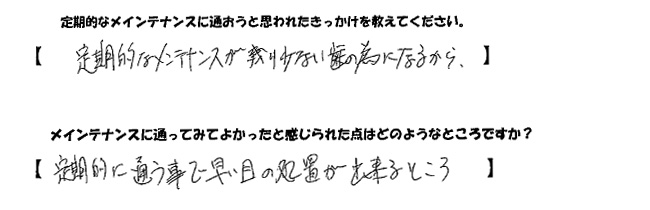 定期的なメインテナンスに通おうと思われたきっかけを教えてください。
【 定期的なメンテナンスが残り少ない歯の為になるから、 】
メインテナンスに通ってみてよかったと感じられた点はどのようなところですか？
【 定期的に通う事で早い目の処置が出来るところ 】